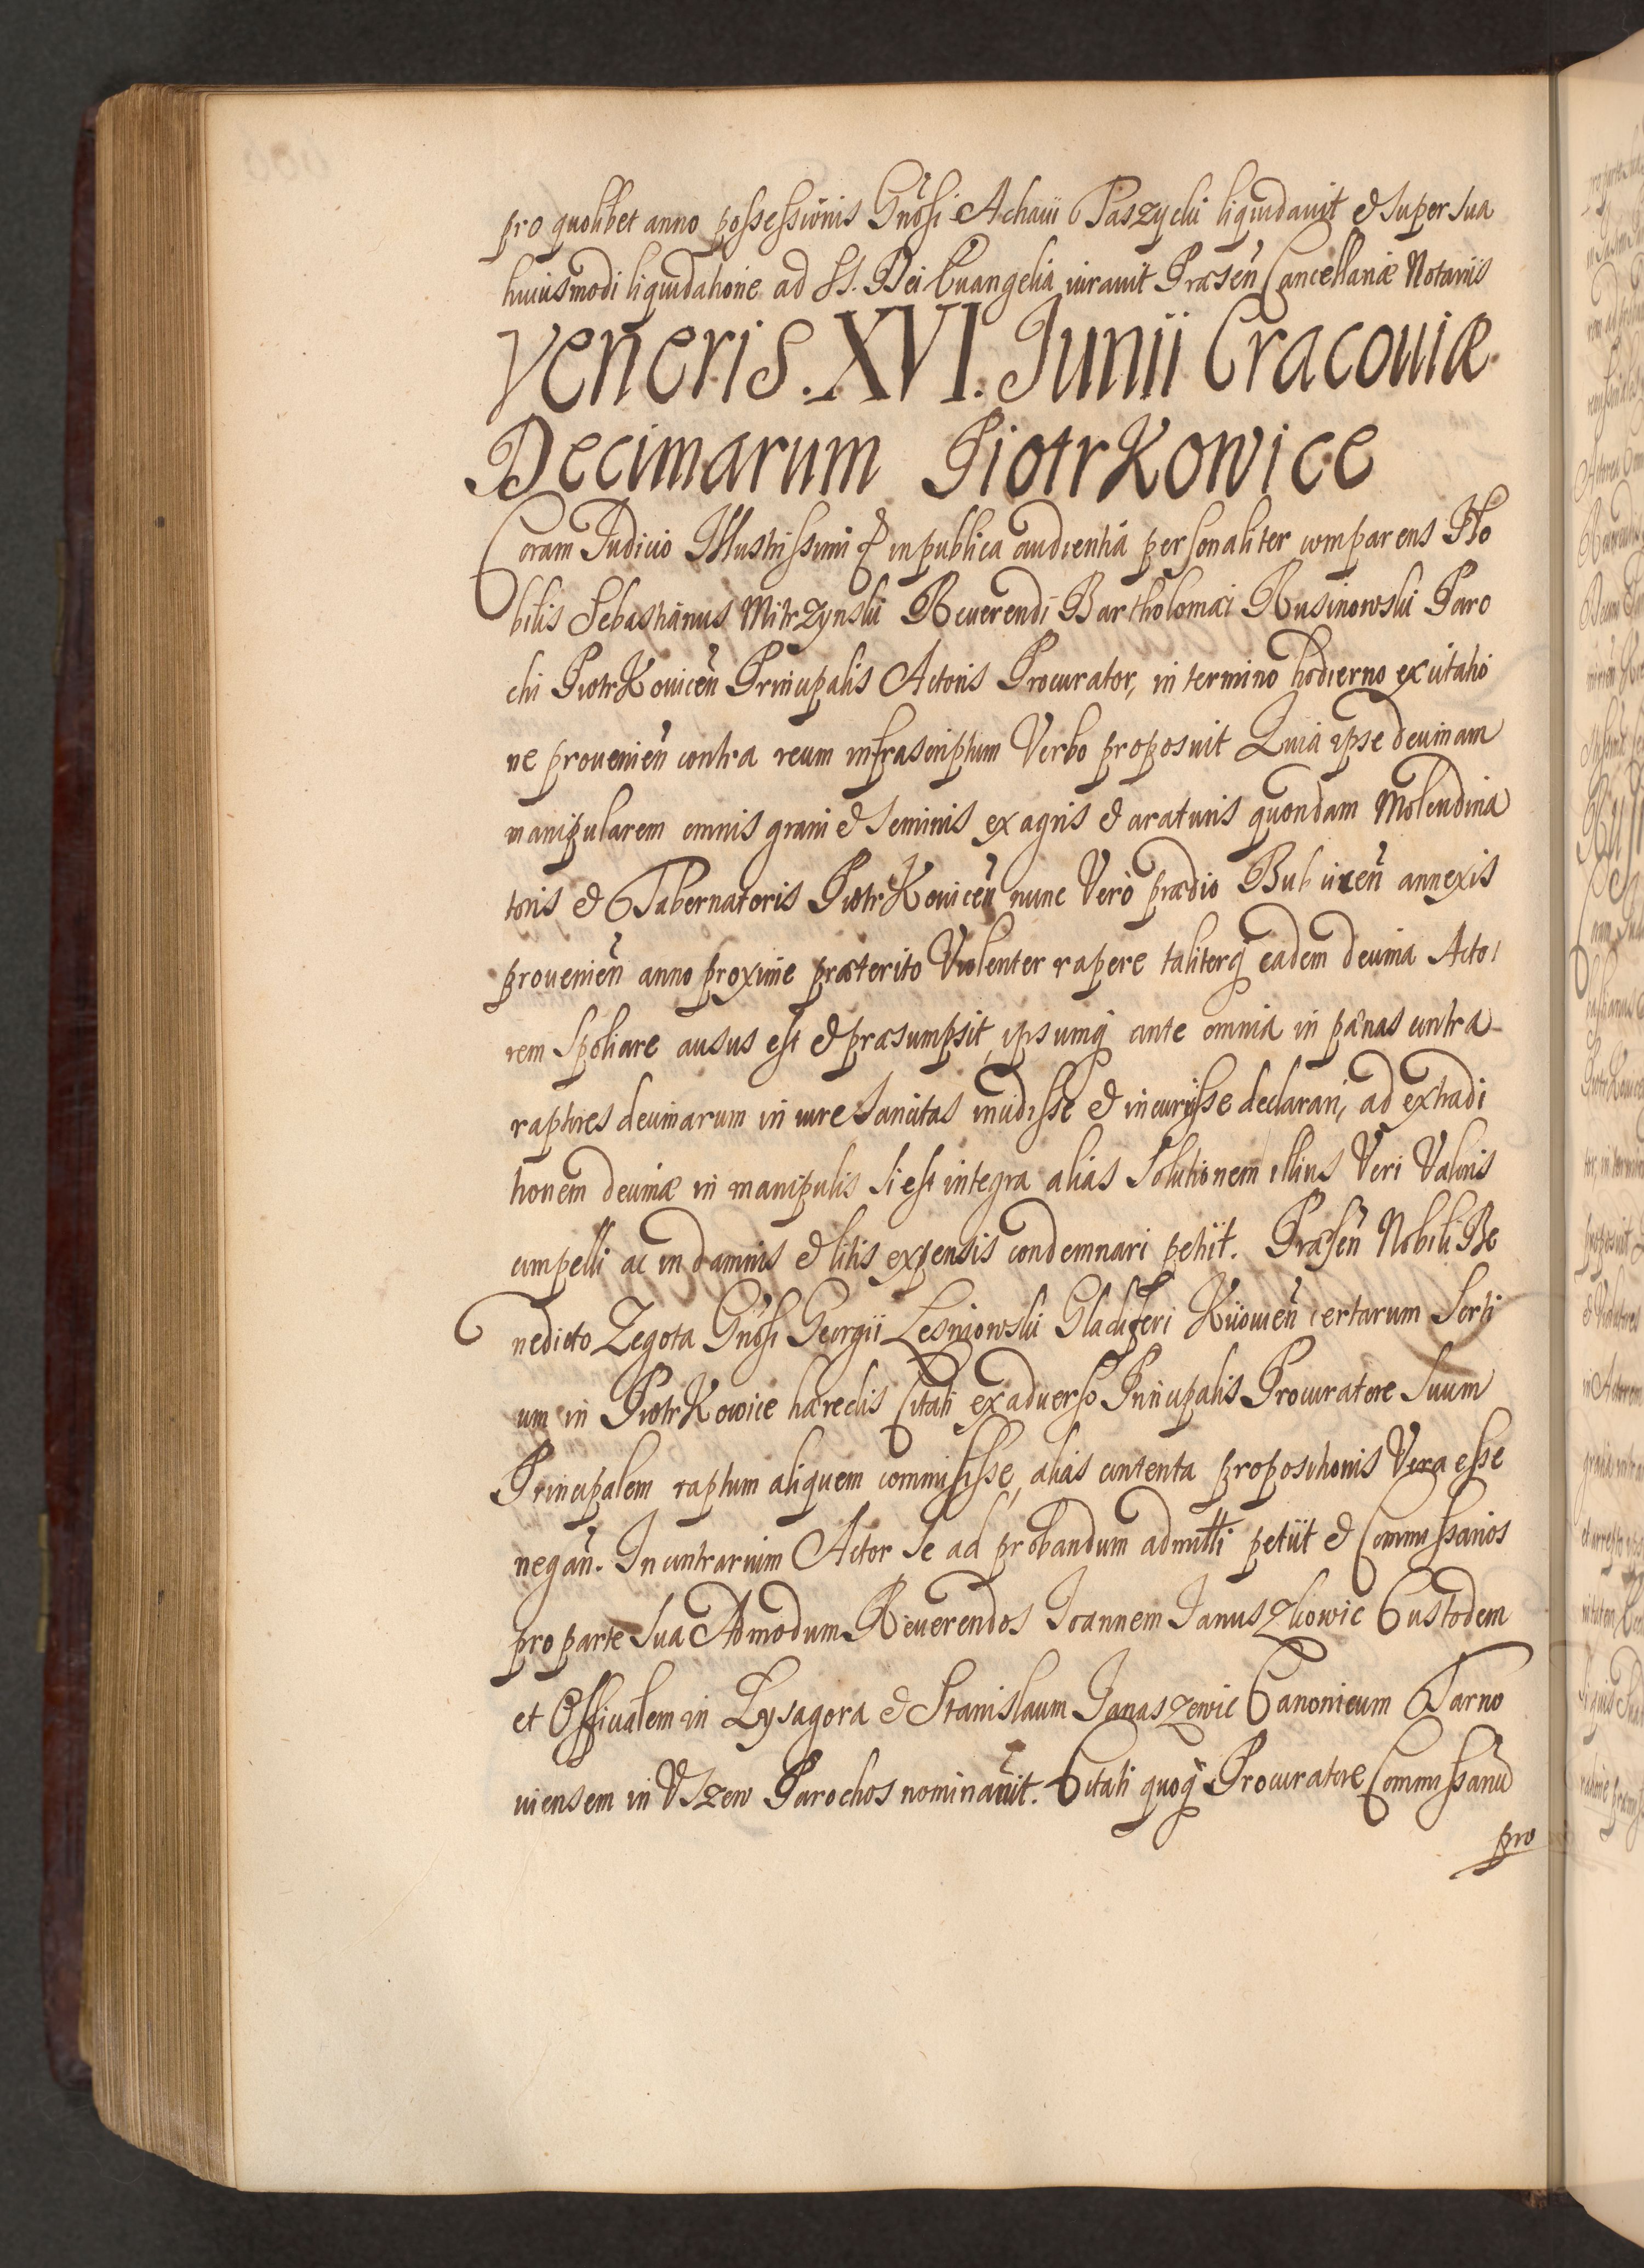 pro quolibet anno possessionis Gnosi Achacii Taszycki liquidauit & super sua
huiusmodi liquidatione ad SS. Dei Euangelia iurauit Præsen̄ Cancellariæ Notariis
Veneris. XVI. Junii Cracouiæ
Decimarum PiotrKowice
Coram Judicio Illustrissimi & in publica audientia personaliter comparens No
bilis Sebastianus Mitrzynski Reuerendi Bartholomæi Rusinowski Paro
chi PiotrKouicen̄ Principalis Actoris Procurator, in termino hodierno ex citatio
ne prouenien̄ contra reum infrascriptum Verbo proposuit Quia ipse decimam
manipularem omnis grani & seminis ex agris & araturis quondam Molendina
toris & Tabernatoris PiotrKouicen̄ nunc Verò prædio annexis
prouenien̄ anno proxime præterito Violenter rapere taliterq́ eadem decima Acto
rem spoliare ausus est & præsumpsit, ipsumq́ ante omnia in pœnas contra
raptores decimarum in iure sancitas incidisse & incurrisse declarari, ad extradi
tionem decimæ in manipulis si est integra alias solutionem illius Veri Valoris
compelli ac in damnis & litis expensis condemnari petiit. Præsen̄ Nobili Be
nedicto Zegota Gnosi Georgii Lesniowski Gladiferi Kiiouien̄ certarum Sorti
um in PiotrKowice hæredis Citati ex aduerso Principalis Procuratore suum
Principalem raptum aliquem commisisse, alias contenta propositionis Vera esse
negan̄. In contrarium Actor se ad probandum admitti petiit & Commissarios
pro parte sua Admodum Reuerendos Joannem Januszkowic Custodem
et Officialem in Lysagora & Stanislaum Janaszewic Canonicum Tarno
uiensem in Uszew Parochos nominauit. Citati quoq́ Procuratore Commissariū
pro